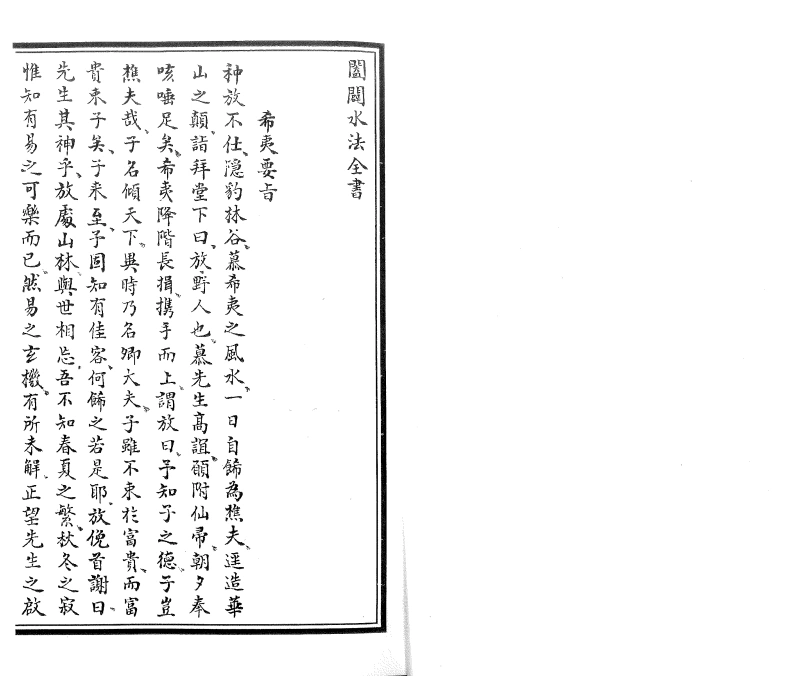 闔闢水法全書
希夷要旨
种放不仕、隱豹林谷、慕希夷之風水、一日自飾為樵夫、逕造華
山之顛、詣拜堂下曰、放、野人也、慕先生高誼、願附仙帚、朝夕奉
咳唾足矣、希夷降階長揖、攜手而上、謂放曰、予知子之德、子豈
樵夫哉、子名傾天下、異時乃名卿大夫、子雖不東於富貴、而富
貴東子矣、子来至、予固知有佳客、何飾之若是耶、放俛首謝曰、
先生其神乎、放處山林、與世相忘、吾不知春夏之繁、秋冬之寂
惟知有易之可樂而已、然易之玄機、有所未解、正望先生之啟